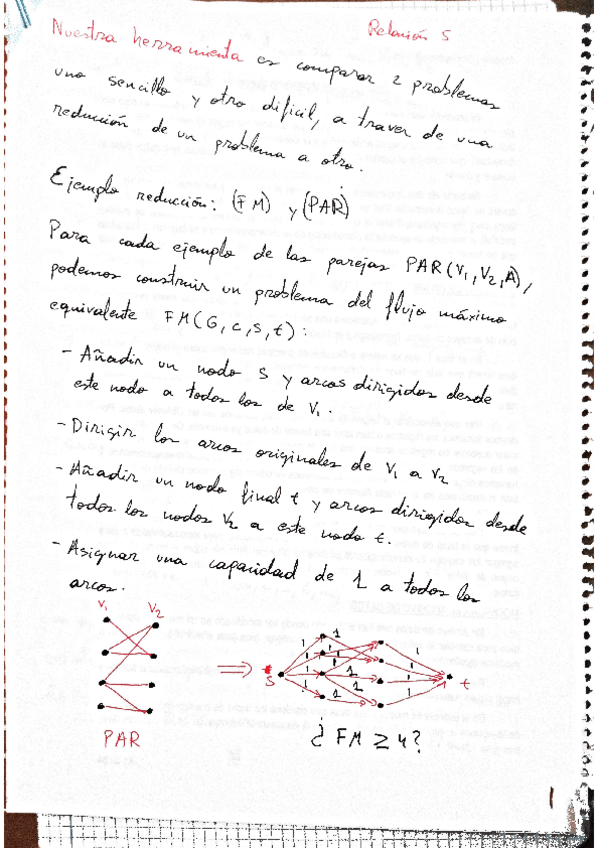 Relación 5
Nuestra herramienta es comparar 2 problemas
uno sencillo y otro difícil, a traver de una
reducción de un problema a otro.
Ejemplo reducción: (FM) y (PAR)
Para cada ejemplo de las parejas PAR(V₁,V₂,A),
podemos construir un problema del flujo máximo
equivalente FM(G,c,s,t):
- Añadir un nodo s y arcos dirigidos desde
este nodo a todos los de V₁.
- Dirigir los arcos originales de V₁ a V₂
- Añadir un nodo final t y arcos dirigidos desde
todos los nodos V₂ a este nodo t.
- Asignar una capacidad de 1 a todos los
arcos.
V₁ V₂
1 1 1
1 1 1
⇒ S 1 1 t
1 1 1
1 1 1
PAR ¿FM ≥ 4?
1